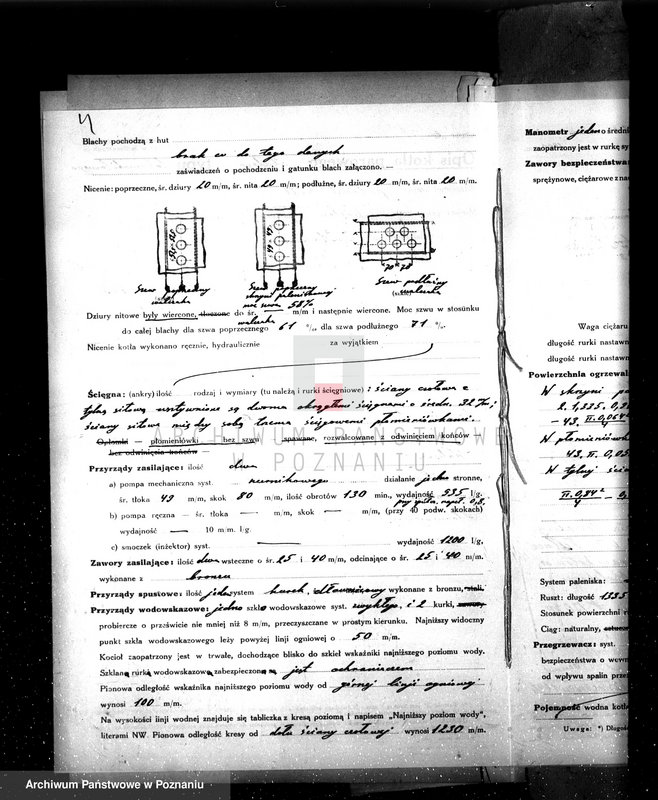 4
Blachy pochodzą z hut
brak co do tego danych
zaświadczeń o pochodzeniu i gatunku blach załączono. —
Nicenie: poprzeczne, śr. dziury 20 m/m, śr. nita 20 m/m; podłużne, śr. dziury 20 m/m, śr. nita 20 m/m.
Szew poprzeczny walczaka
Szew poprzeczny
moc szwu 58%
Szew podłużny walczaka
Dziury nitowe były wiercone, tłoczone do śr. — m/m i następnie wiercone. Moc szwu w stosunku
walczaka
do całej blachy dla szwa poprzecznego 61 %, dla szwa podłużnego 71 %.
Nicenie kotła wykonano ręcznie, hydraulicznie za wyjątkiem
Ścięgna: (ankry) ilość rodzaj i wymiary (tu należą i rurki ścięgniowe): ściany czołowa z
tylną sitową usztywnione są dwoma okrągłemi ścięgnami o średn. 32 m/m;
ściany sitowe między sobą trzema ścięgowemi płomieniówkami.
Opłomki — płomieniówki — bez szwu — spawane, rozwalcowane z odwinięciem końców —
bez odwinięcia końców
Przyrządy zasilające: ilość dwa
a) pompa mechaniczna syst. nurnikowego działanie jedno stronne,
śr. tłoka 49 m/m, skok 80 m/m, ilość obrotów 130 min., wydajność 935 l/g.
b) pompa ręczna — śr. tłoka — m/m, skok — m/m, (przy 40 podw. skokach)
wydajność — 10 m/m. l/g.
c) smoczek (inżektor) syst. wydajność 1200 l/g,
Zawory zasilające: ilość dwa wsteczne o śr. 25 i 40 m/m, odcinające o śr. 25 i 40 m/m.
wykonane z bronzu
Przyrządy spustowe: ilość jeden system kurek, dławnicowy wykonane z bronzu, stali.
Przyrządy wodowskazowe: jedno szkło wodowskazowe syst. zwykłego, i 2 kurki,
probiercze o prześwicie nie mniej niż 8 m/m, przeczyszczane w prostym kierunku. Najniższy widoczny
punkt szkła wodowskazowego leży powyżej linji ogniowej o 50 m/m.
Kocioł zaopatrzony jest w trwałe, dochodzące blisko do szkieł wskaźniki najniższego poziomu wody.
Szklana rurka wodowskazowa zabezpieczona jest ochraniaczem
Pionowa odległość wskaźnika najniższego poziomu wody od górnej linji ogniowej
wynosi 100 m/m.
Na wysokości linji wodnej znajduje się tabliczka z kresą poziomą i napisem „Najniższy poziom wody",
literami NW. Pionowa odległość kresy od dołu ściany czołowej wynosi 1230 m/m.
Manometr jeden o średni
zaopatrzony jest w rurkę sy
Zawory bezpieczeństwa
sprężynowe, ciężarowe z na
Waga ciężaru
długość rurki nastawn
długość rurki nastawn
Powierzchnia ogrzewal
W skrzyni
W płomieniówk
W tylnej ścia
System paleniska:
Ruszt: długość 1335
Stosunek powierzchni r
Ciąg: naturalny,
Przegrzewacz: syst.
bezpieczeństwa o wewn
od wpływu spalin prze
Pojemność wodna kotła
Uwaga: *) Długość
ARCHIWUM PAŃSTWOWE
W POZNANIU
Archiwum Państwowe w Poznaniu